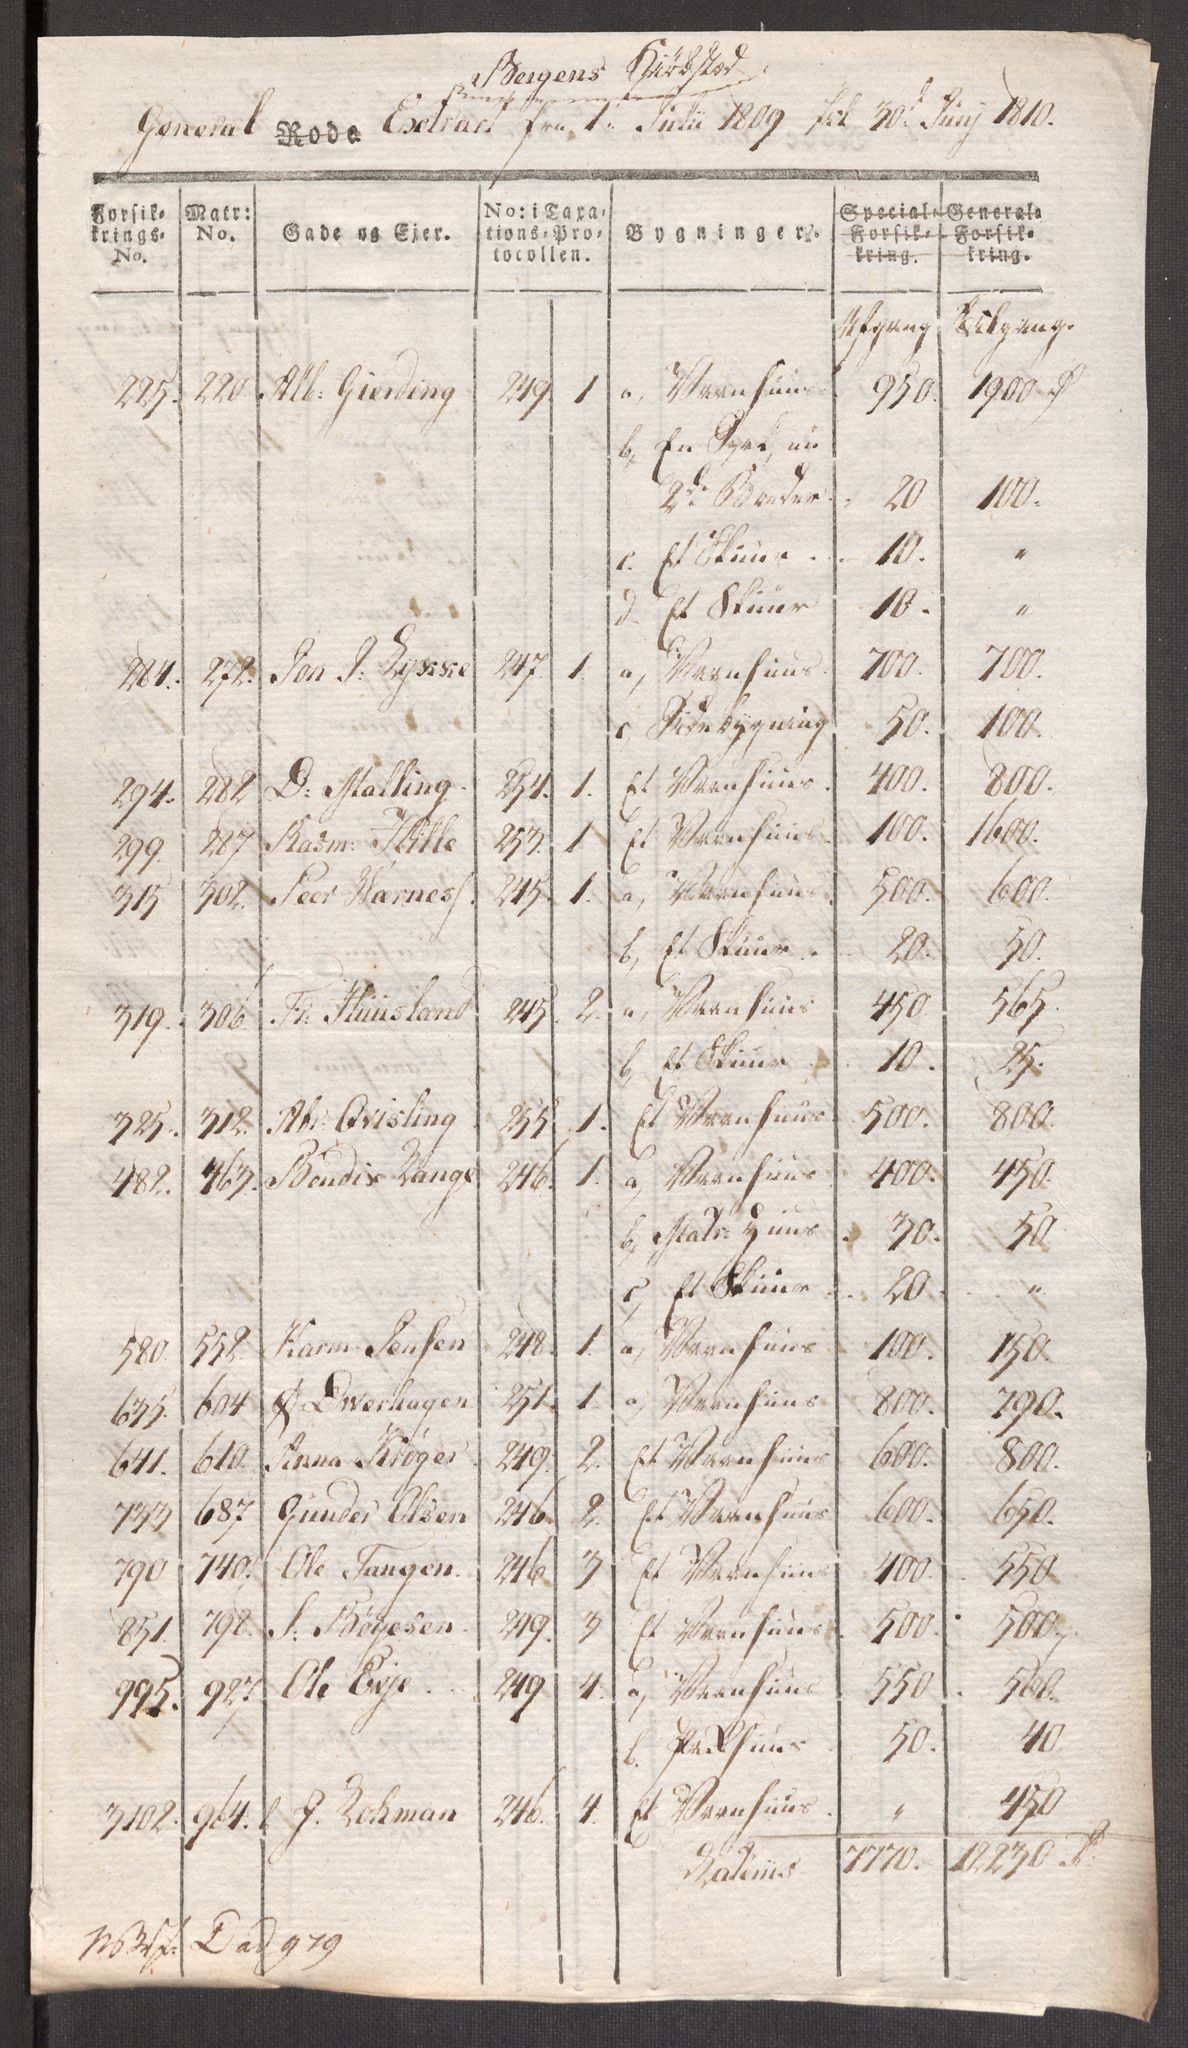 Bergens Kiøbstad
General Rode Extract fra 1. Julii 1809 til 30d Junij 1810.
Forsikkrings- No. Matr: No. Gade og Ejer. No: i Taxations-Protocollen. Bygninger. Special-Forsikkring. General-Forsikkring.
Afgang Tilgang
225. 220 Alb: Gierding 249 1 a, Vaanhuus 950. 1900
b, En
20 100.
c. Et Skuur 10. "
d. Et Skuur 10. "
284. 272. Jon J: Lykke 247. 1. a, Vaanhuus 700. 700.
c Sidebygning 50. 100.
294. 282 D: Malling 254. 1. Et Vaanhuus 400. 800.
299. 287 Rasm: Hille 253. 1 Et Vaanhuus 100. 1600.
315 302. Peer Harness 245. 1. a, Vaanhuus 500. 600.
b, Et Skuur 20. 50.
319. 306 Fr: Huusland 245. 2. a, Vaanhuus 450. 565.
b, Et Skuur 10. 25.
325. 312. Abr: Qvisling 255. 1. Et Vaanhuus 500. 800.
482. 463. Bendix Lange 246. 1. a, Vaanhuus 400. 450.
b, Matr: Huus 30. 50
c, Et Skuur 20. "
580. 552. Harm Jensen 248. 1. a, Vaanhuus 100. 150.
635. 604 Dverhagen 251. 1. a, Vaanhuus 800. 790.
641. 610. Anna Krøger 249. 2. Et Vaanhuus 600. 800.
733 687 Gunder Olsen 246. 2. Et Vaanhuus 600. 650.
790 740. Ole Tangen 246 3 Et Vaanhuus 400. 550
851. 798. S. Bøyesen 249. 3 Et Vaanhuus 500. 500.
995. 927 Ole Evje 249 4. a, Vaanhuus 550. 560.
b. Pakhuus 50. 40
3102. 964. J. Lohman 246. 4. Et Vaanhuus " 450
Latuus 7770. 12230
979